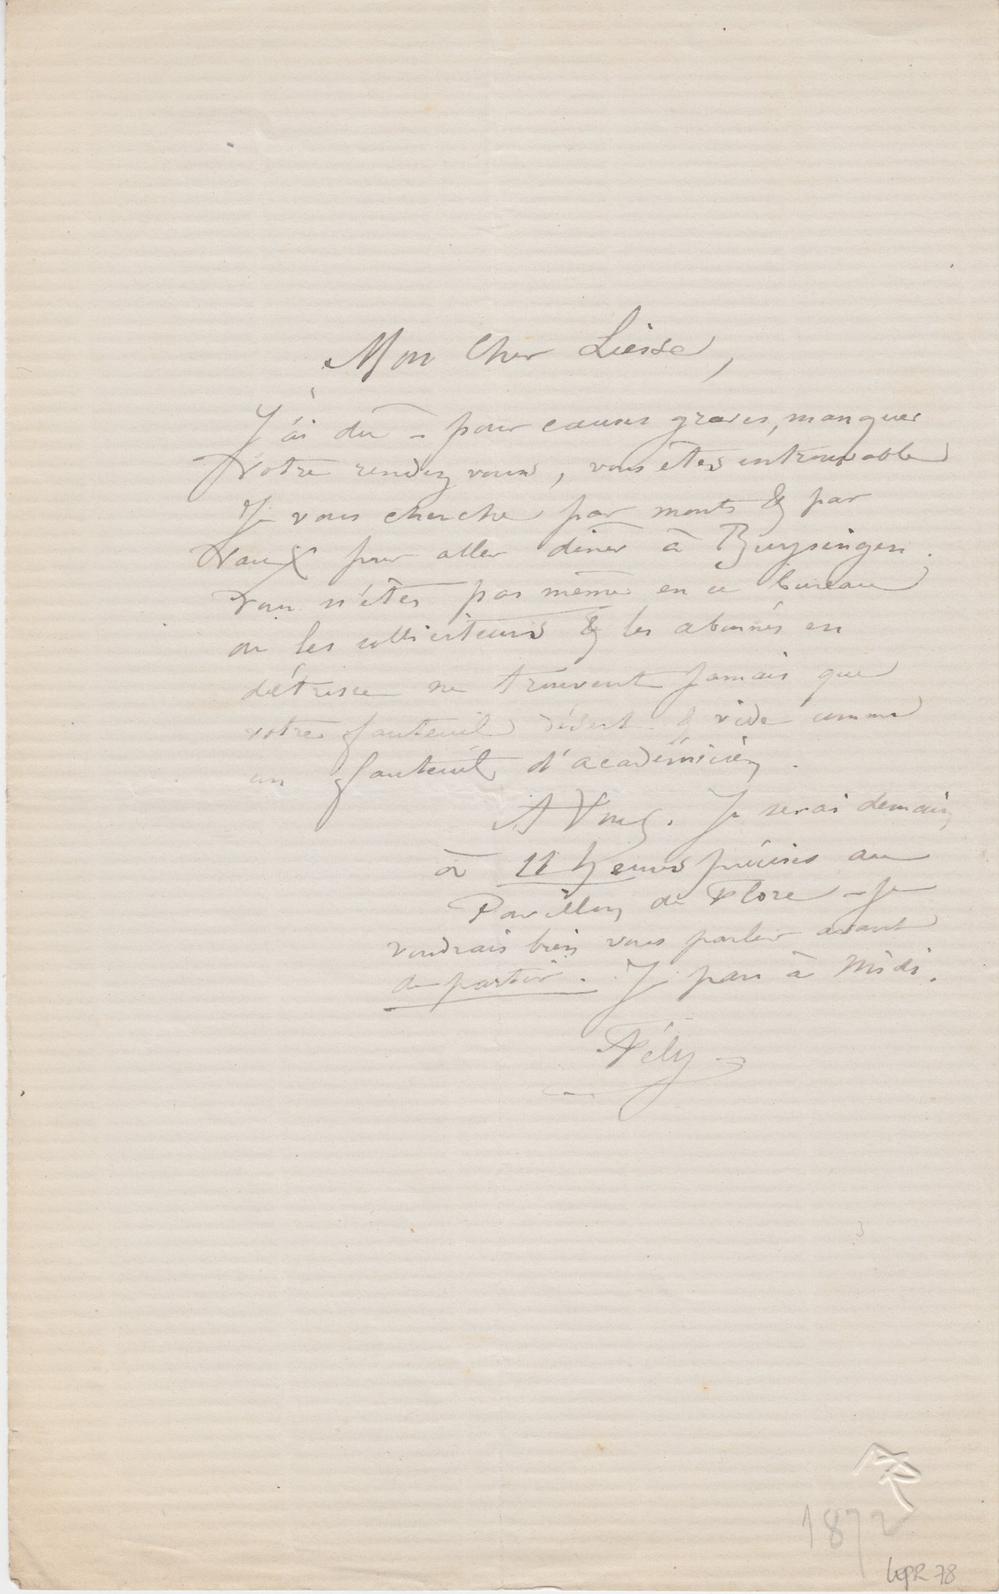 Mon Cher Liesse,
J'ai dû – pour causes graves, manquer
Votre rendez vous, vous êtes introuvable
Je vous cherche par monts & par
Vaux pour aller diner à Buysingen.
Vous n'êtes pas même en ce bureau
où les solliciteurs & les abonnés en
détresse ne trouvent jamais que
votre fauteuil désert & vide comme
un fauteuil d'académicien.
A Vous. Je serai demain,
à 11 heures précises au
Pavillon de Flore – Je
voudrais bien vous parler avant
de partir. Je pars à Midi.
Fély
1872
LEPR 78